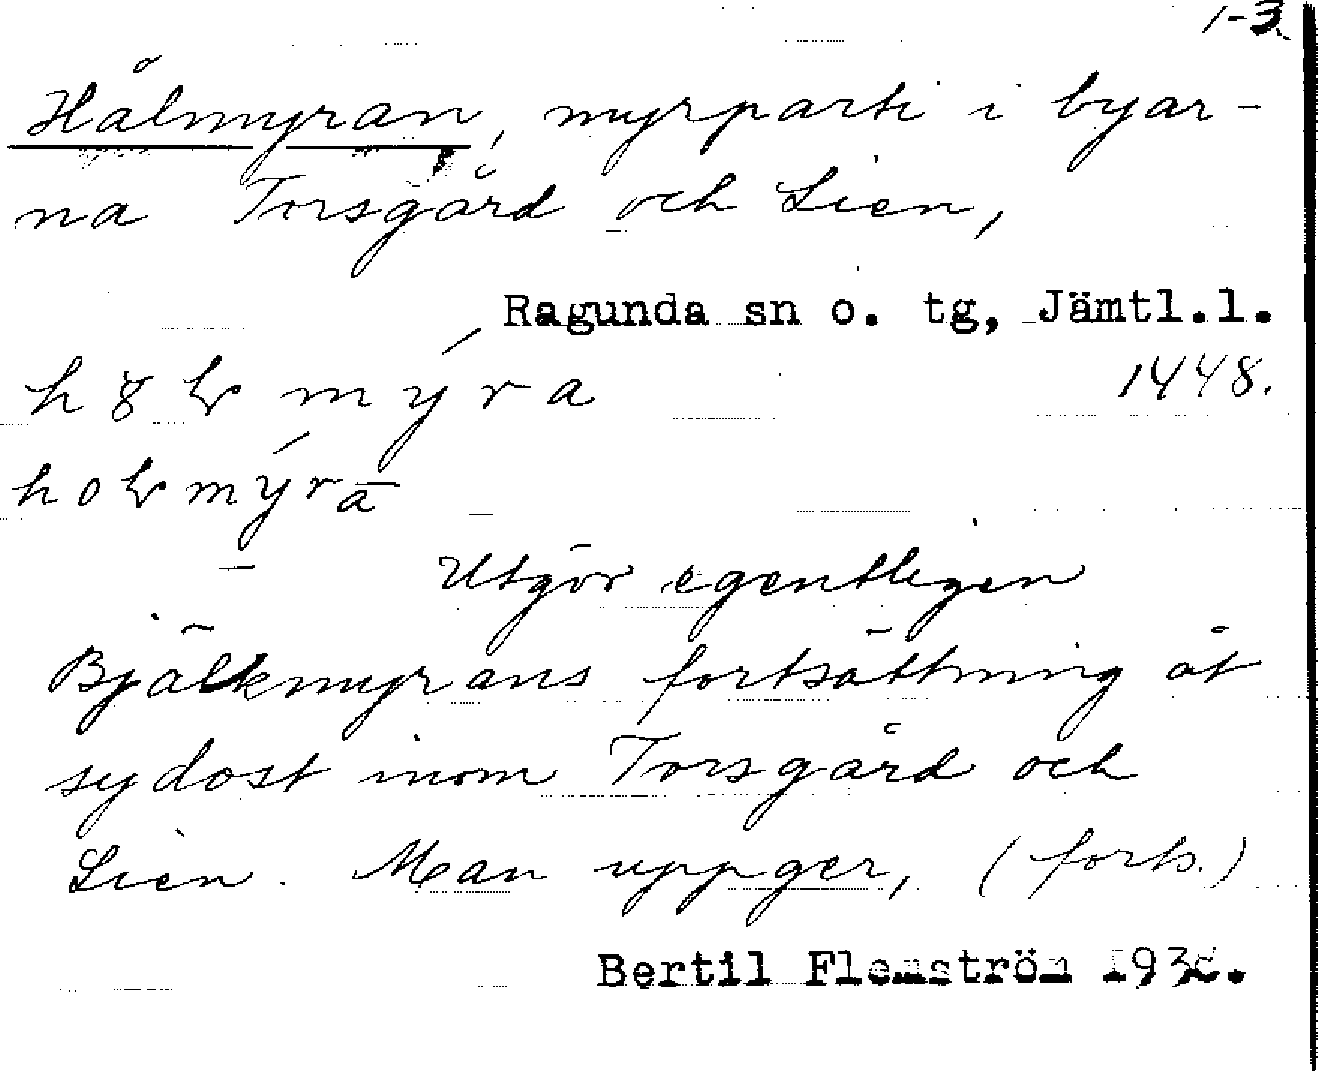 1-3
Hålmyran, myrparti i byar-
na Torsgård och Lien,
Ragunda sn o. tg, Jämtl.l.
1448.
Utgör egentligen
Bjälkmyrans fortsättning åt
sydost inom Torsgård och
Lien. Man uppger, (forts.)
Bertil Flemström